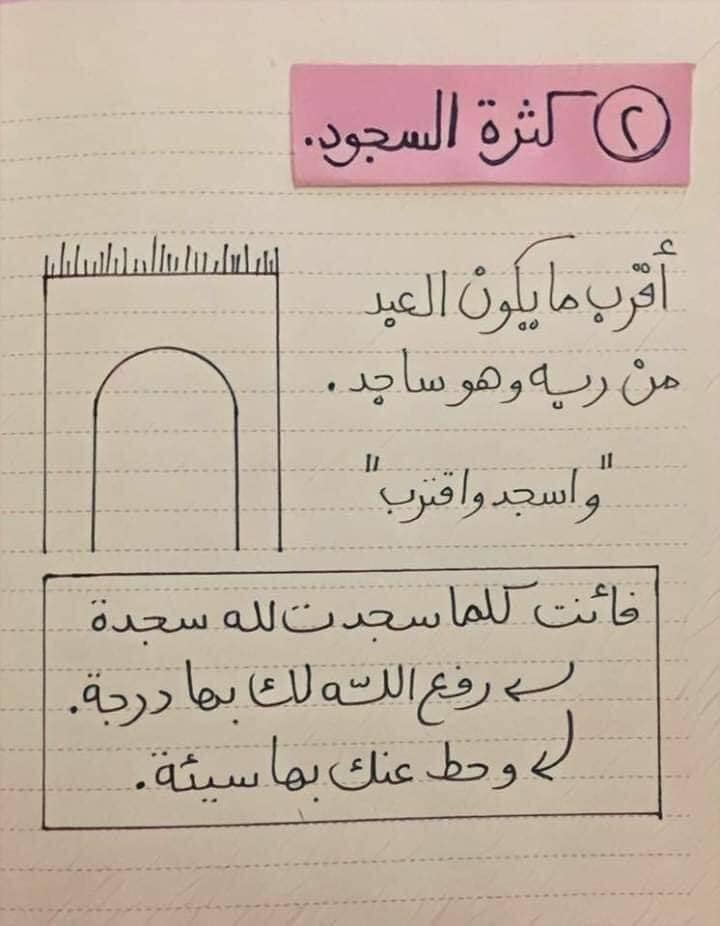 ٢ كثرة السجود.
أقْرب ما يكونْ العبد
منْ ربه وهو ساجد.
"واسجد واقترب"
فائنت كلما سجدت لله سجدة
رفع اللّه لك بها درجة.
وحط عنك بها سيئة.